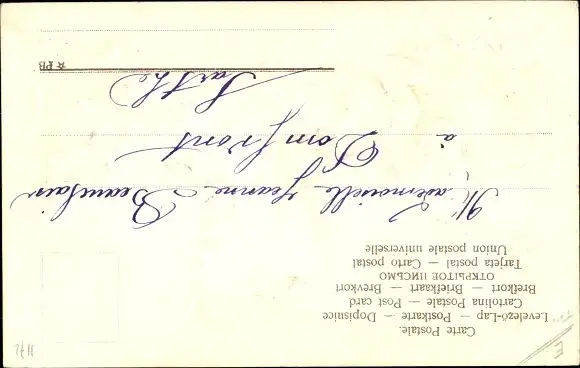 Carte Postale.
Levelező-Lap — Postkarte — Dopisnice
Cartolina Postale — Post card
Brefkort — Briefkaart — Brevkort
ОТКРЫТОЕ ПИСЬМО
Tarjeta postal — Carto postal
Union postale universelle
Mademoiselle Jeanne Beaufair
à
Domfront
Sarthe
☆ PB